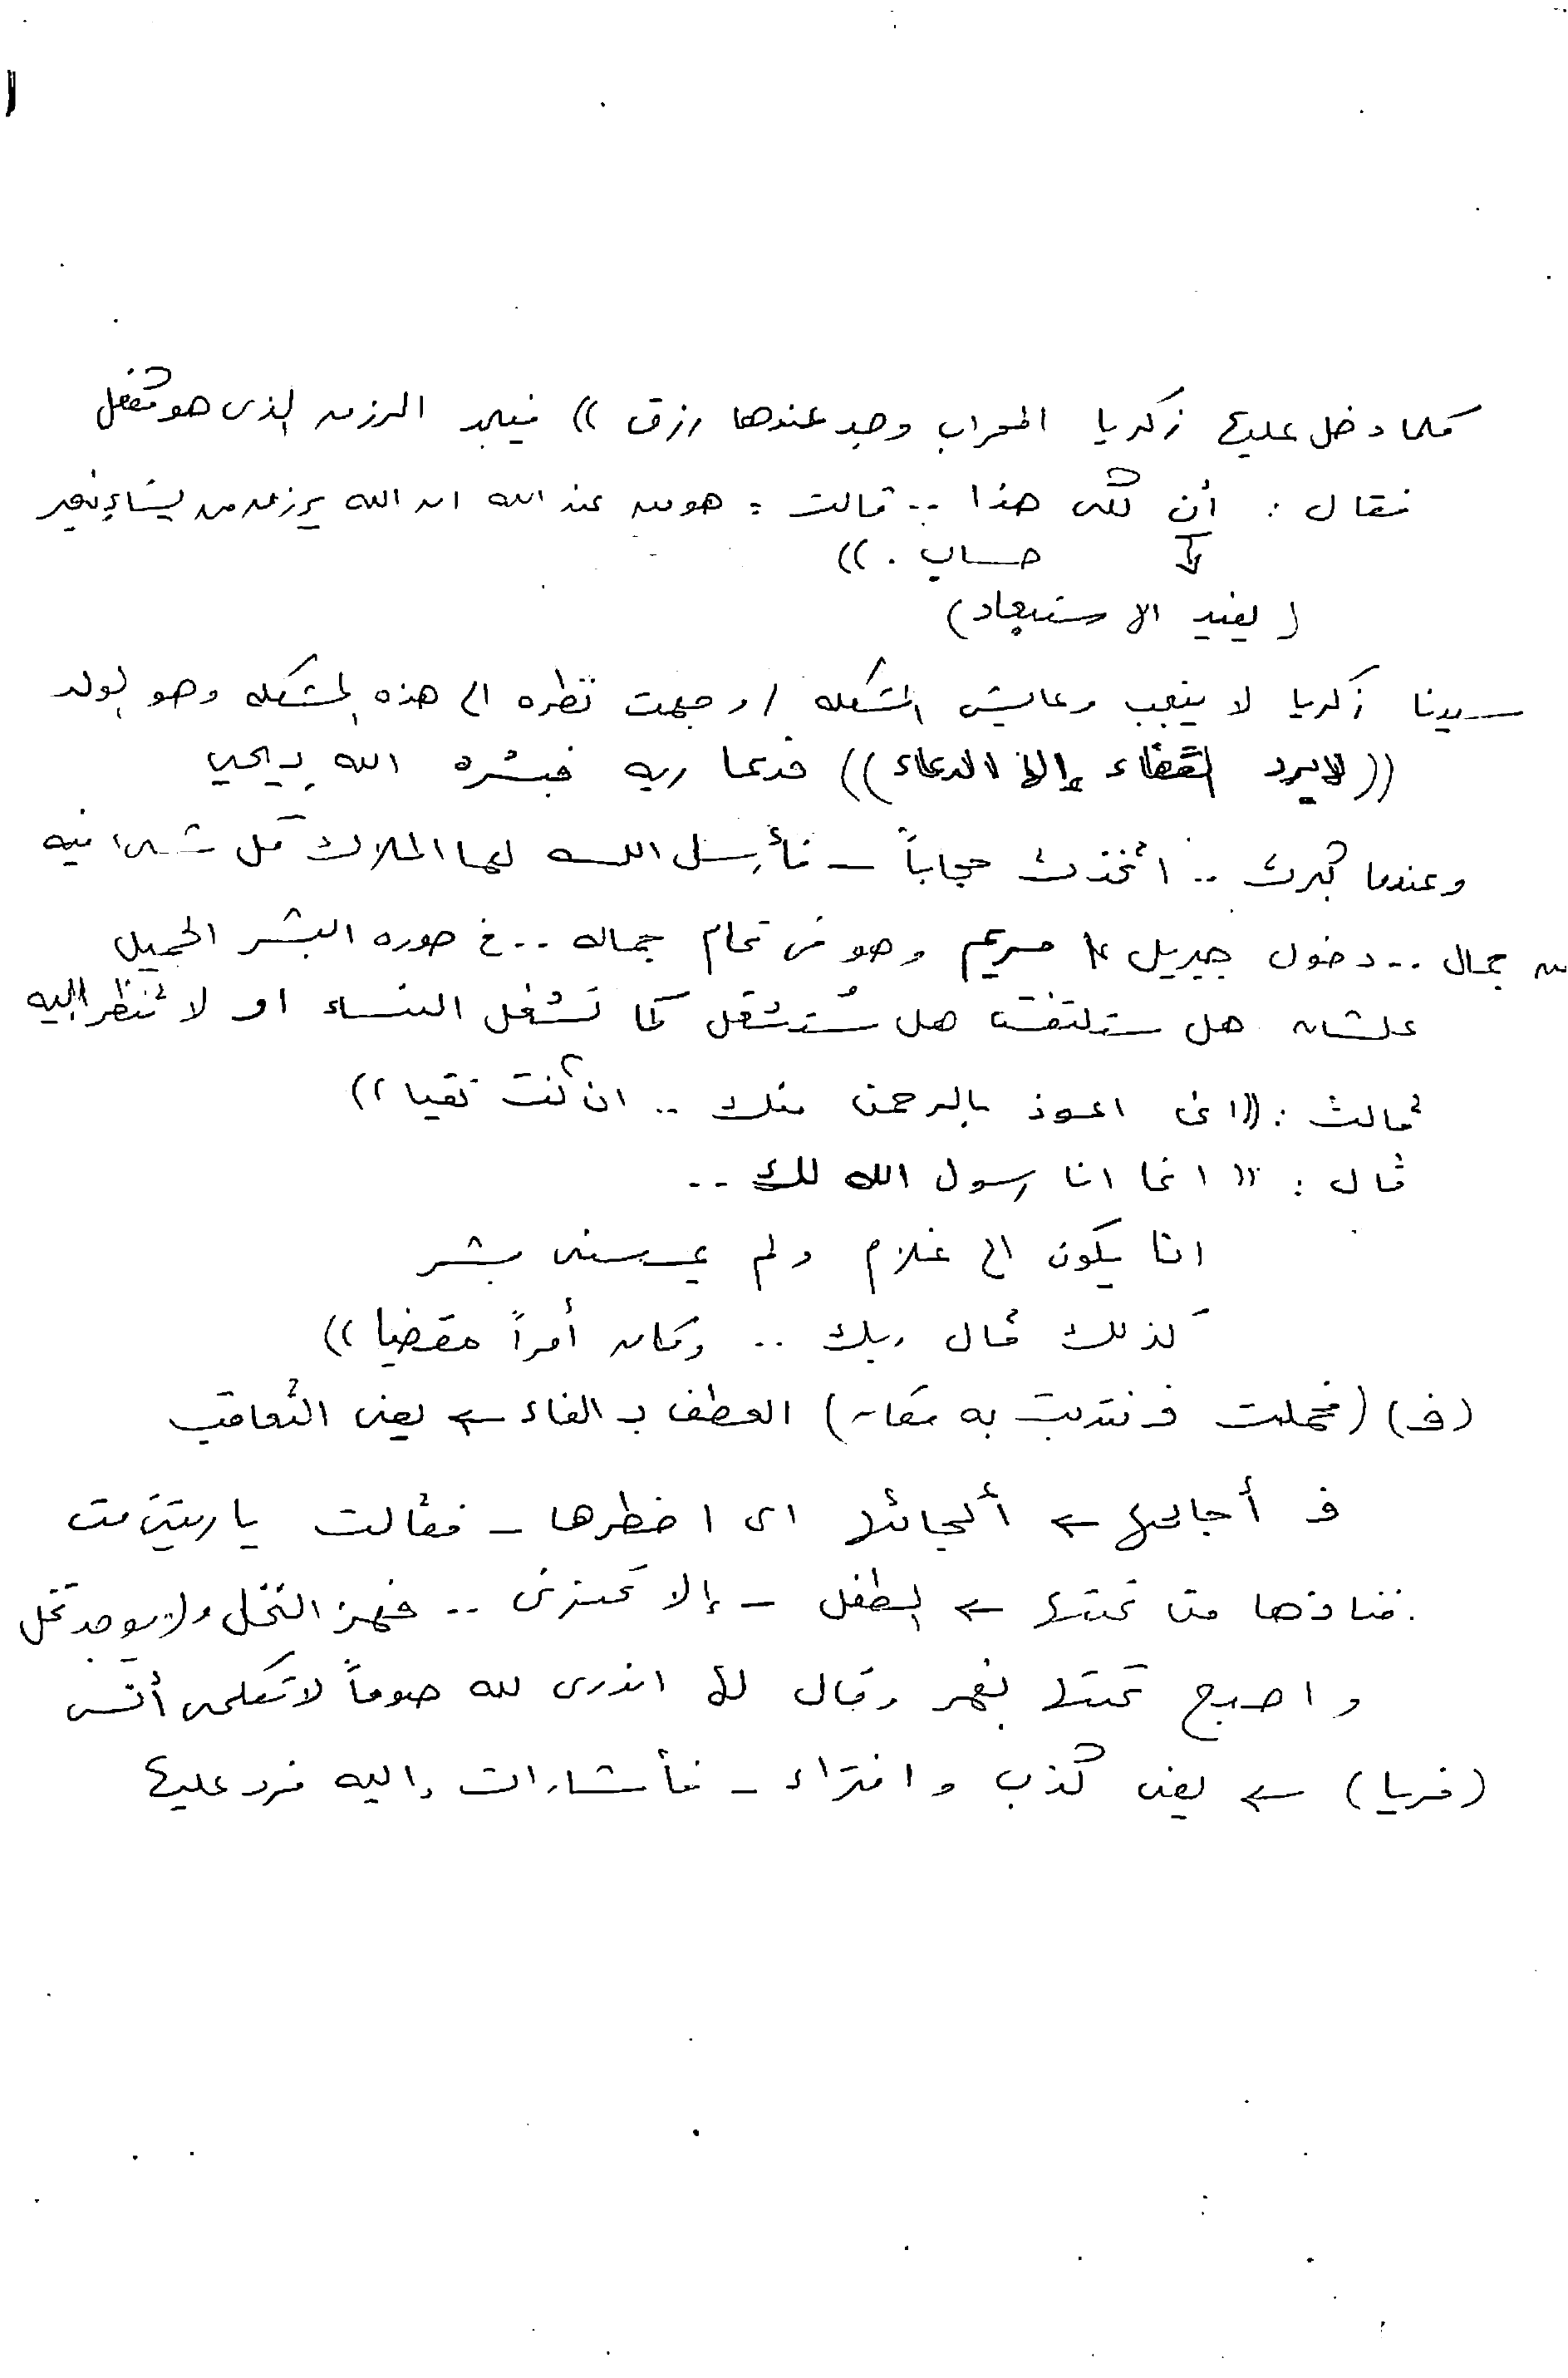 كلما دخل عليها زكريا المحراب وجد عندها رزق )) فيجد الرزق الذى هو
فقال : أن لكى هذا .. قالت : هو من عند الله ان الله يرزق من يشاء بغير
حساب . ))
( يفيد الاستبعاد )
سيدنا زكريا لا ينجب وعايش المشكله / وجهت نظره الى هذه المشكله وهو الولد
(( لا يرد القضاء إلا الدعاء )) فدعا ربه فبشره الله بـ يحيى
وعندما كبرت .. اتخذت حجاباً - فأرسل الله لها الملاك كل شىء فيه
من جمال .. دخول جبريل على مريم وهو فى تمام جماله .. فى صوره البشر الجميل
علشان هل ستلتفت هل ستنشغل كما تشغل النساء او لا تنظر اليه
قالت : (( انى اعوذ بالرحمن منك .. ان كنت تقيا ))
قال : (( انما انا رسول الله لك ..
انا يكون الى غلام ولم يمسسنى بشر
كذلك قال ربك .. وكان أمراً مقضيا ))
(ف) (فحملت فنتدبت به مكان) العطف بـ الفاء ← يعنى التعاقب
ف أجائها ← ألجائها اى اضطرها - فقالت يا ريتنى مت
فنادها من تحتها ← الطفل - إلا تحزنى .. فهز النخل ولا يوجد نخل
واصبح تحتها نهر وقال لها انذرى لله صوماً لا تكلمى أنسى
(فريا) ← يعنى كذب وافتراء - فأشارات إليه فرد عليها